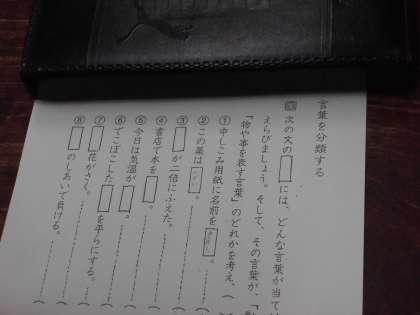 言葉を分類する
次の文の には、どんな言葉が当て
えらびましょう。そして、その言葉が、「
「物や事を表す言葉」のどれかを考え、(
① 申しこみ用紙に名前を 。
② この薬は 。
③ が二倍にふえた。
④ 書店で本を 。
⑤ 今日は気温が 。
⑥ でこぼこした を平らにする。
⑦ 花がさく。
⑧ のしあいで負ける。